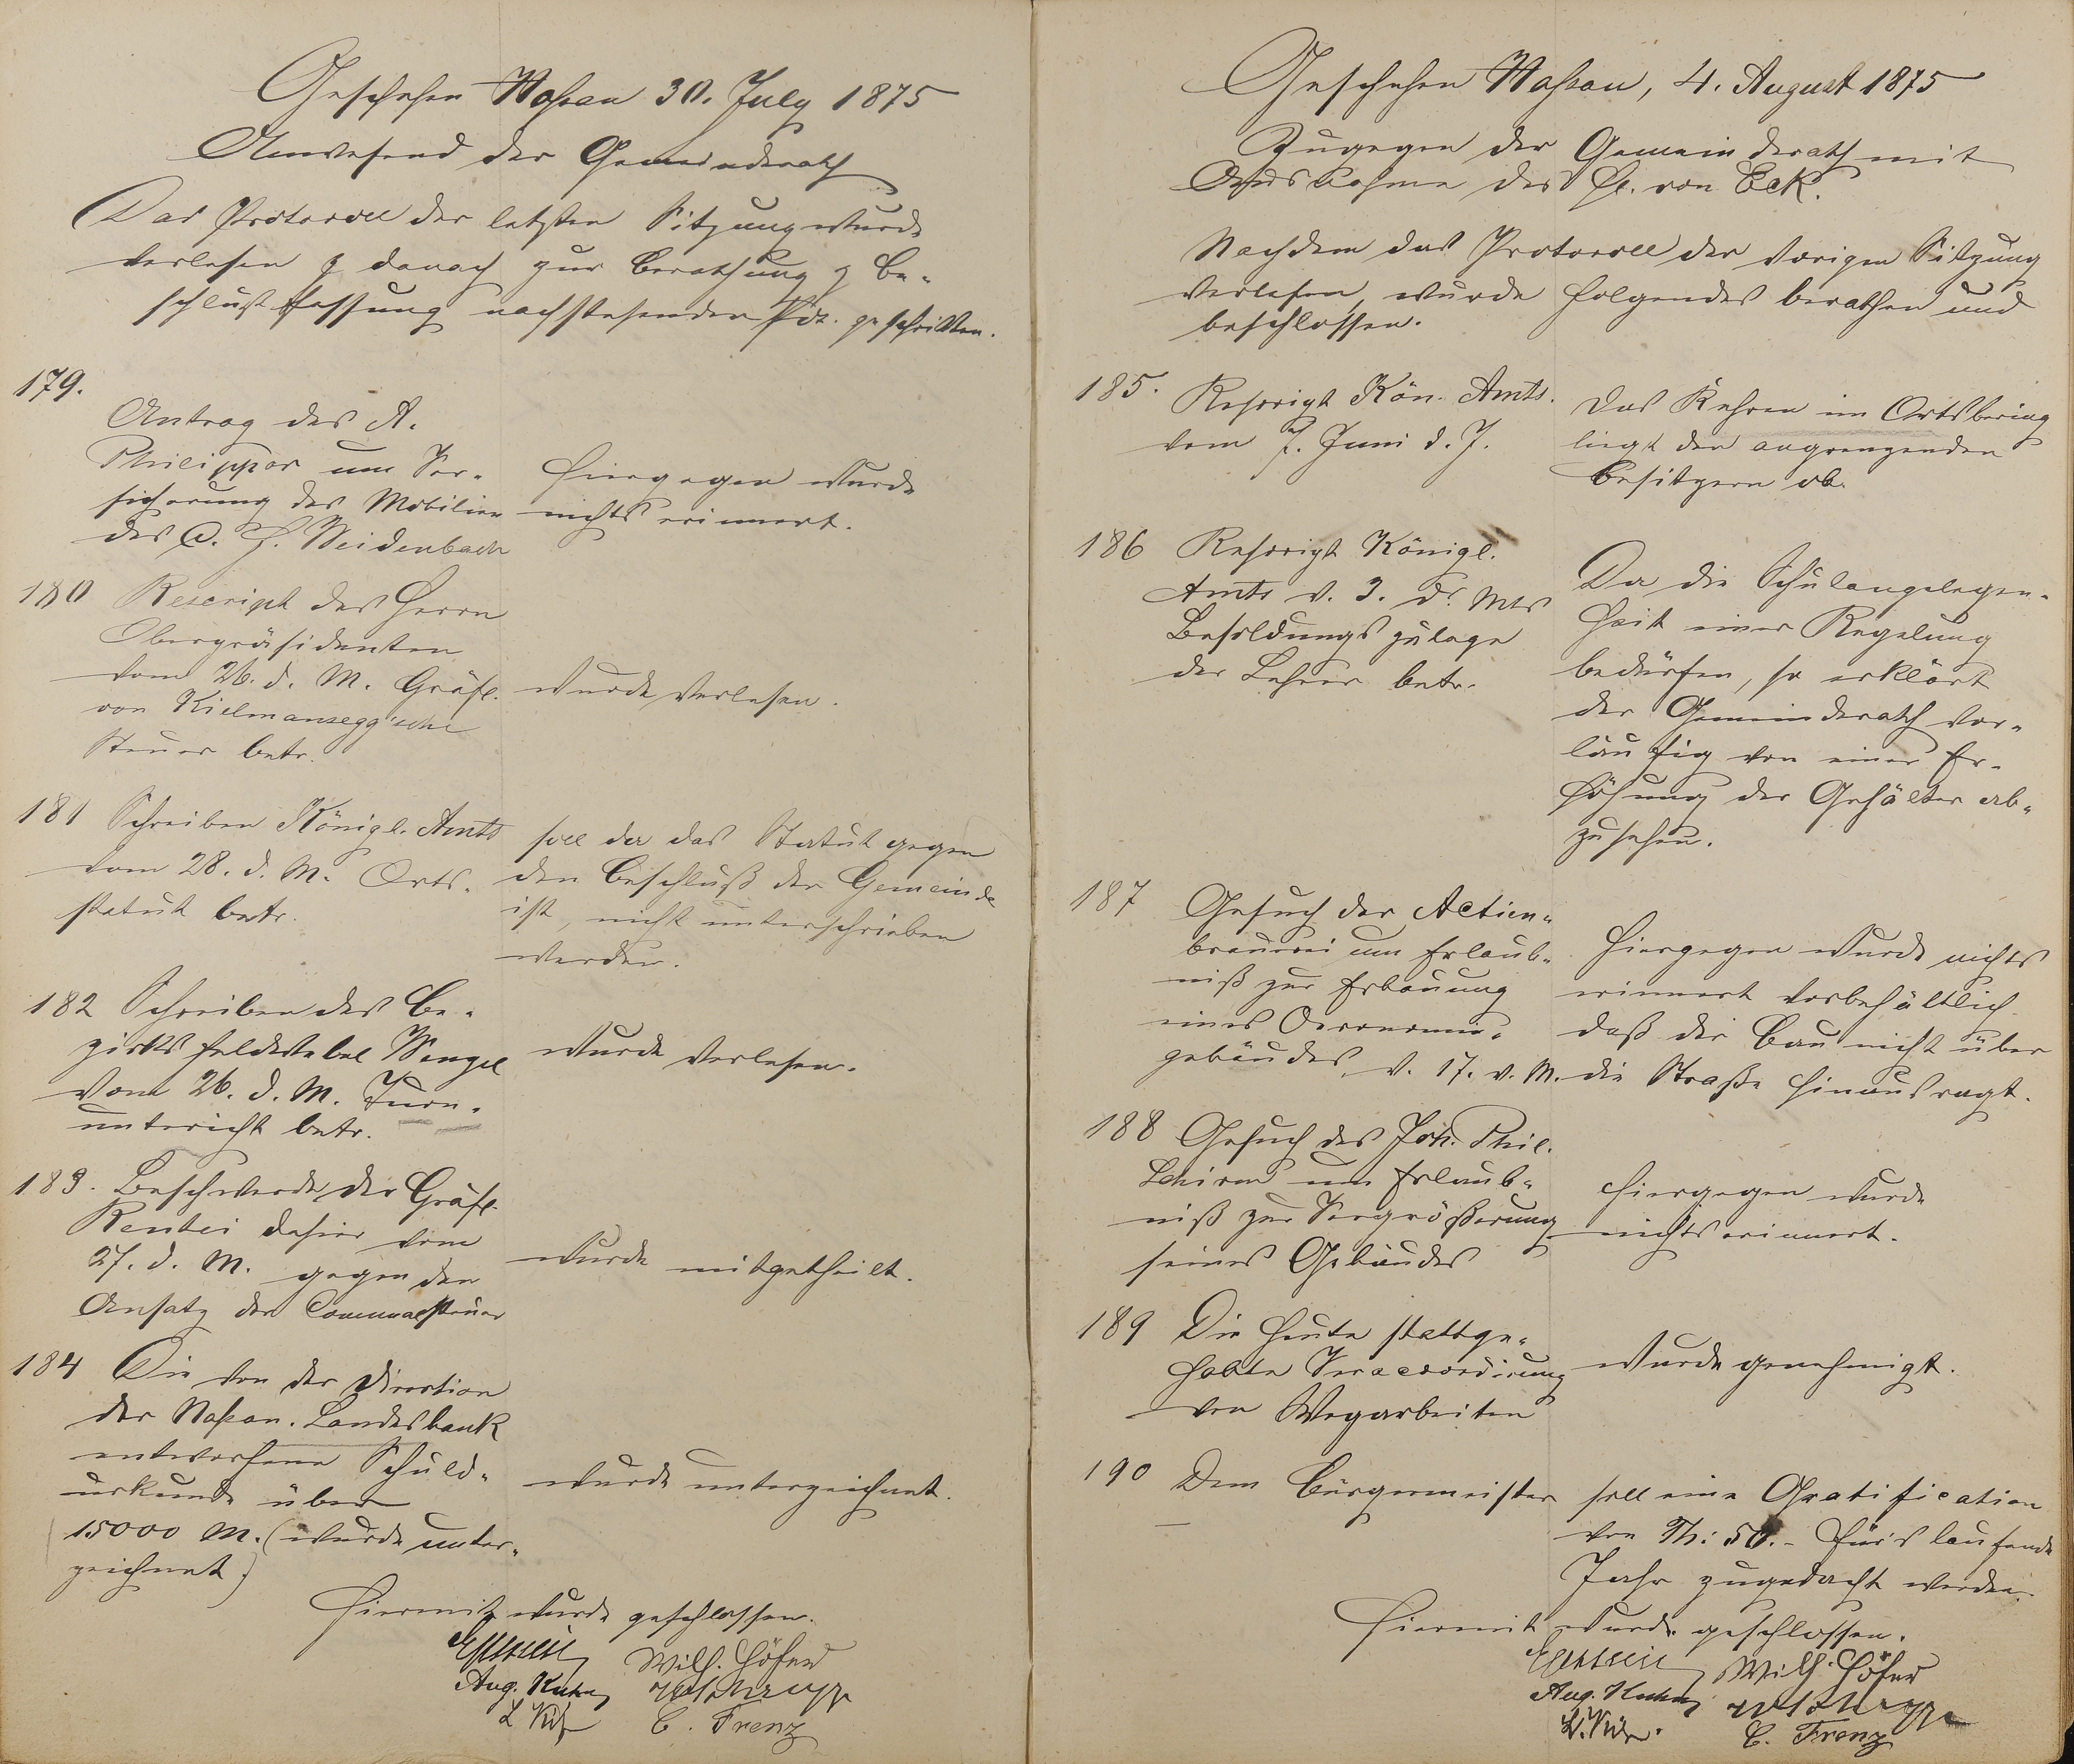 Geschehen Nassau 30. July 1875
Anwesend der Gemeinderath
Das Protocoll der letzten Sitzung wurde
verlesen & danach zur Berathung & Be-
schlußfassung nachstehender Pos. geschritten.
179.
Antrag des A.
Philippar um Ver-
sicherung der Mobilien
des C. H. Weidenbach
Hiergegen wurde
nichts erinnert.
180 Rescript des Herrn
Oberpräsidenten
vom 26. d. M. Gräfl.
von Kielmansegg'sche
Steuer betr.
wurde verlesen.
181 Schreiben Königl. Amts
vom 28. d. M. Orts-
statut betr.
soll da das Statut gegen
den Beschluß der Gemeinde
ist, nicht unterschrieben
werden.
182 Schreiben des Be-
zirksfeldwebel Wenzel
vom 26. d. M. Turn-
unterricht betr.
wurde verlesen.
183. Beschwerde der Gräfl.
Rentei dahier vom
27. d. M. gegen den
Ansatz der Communalsteuer
wurde mitgetheilt.
184 Die von der Direction
der Nassau. Landesbank
entworfene Schuld-
urkunde über
15000 M. (wurde unter-
zeichnet)
wurde unterzeichnet.
Hiermit wurde geschlossen.
Wilh. Höfer
Aug. Kuhn
C. Frenz
Geschehen Nassau, 4. August 1875
Zugegen der Gemeinderath mit
Ausnahme des H. von Eck.
Nachdem das Protocoll der vorigen Sitzung
verlesen, wurde folgendes berathen und
beschlossen.
185. Rescript Kön. Amts.
vom 7. Juni d. J.
Das Kehren im Ortsbering
liegt den angrenzenden
Besitzern ob.
186 Rescript Königl.
Amts v. 3. d. Mts
Besoldungszulage
der Lehrer betr.
Da die Schulangelegen-
heit einer Regelung
bedürfen, so erklärt
der Gemeinderath vor-
läufig von einer Er-
höhung der Gehälter ab-
zusehen.
187 Gesuch der Actien-
brauerei um Erlaub-
niß zur Erbauung
eines Oeconomie-
gebäudes v. 17. v. M.
Hiergegen wurde nichts
erinnert vorbehältlich
daß der Bau nicht über
die Straße hinausragt.
188 Gesuch des Joh. Phil.
Schirm um Erlaub-
niß zur Vergrößerung
seines Gebäudes
Hiergegen wurde
nichts erinnert.
189 Die heute stattge-
habte Veraccordirung
von Wegarbeiten
wurde genehmigt.
190 Dem Bürgermeister
soll eine Gratification
von Th: 50.- für's laufende
Jahr zugedacht werden.
Hiermit wurde geschlossen.
Wilh. Höfer
Aug. Kuhn
C. Frenz